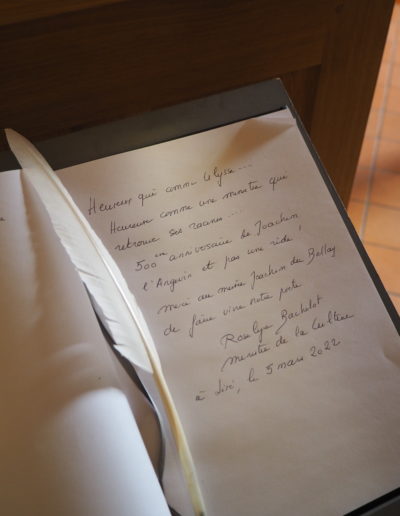 Heureux qui comme Ulysse...
Heureuse comme une ministre qui
retrouve ses racines....
500ème anniversaire de Joachim
l'Angevin et pas une ride !
merci au musée Joachim du Bellay
de faire vivre notre poète
Roselyne Bachelot
ministre de la Culture
à Liré, le 5 mars 2022